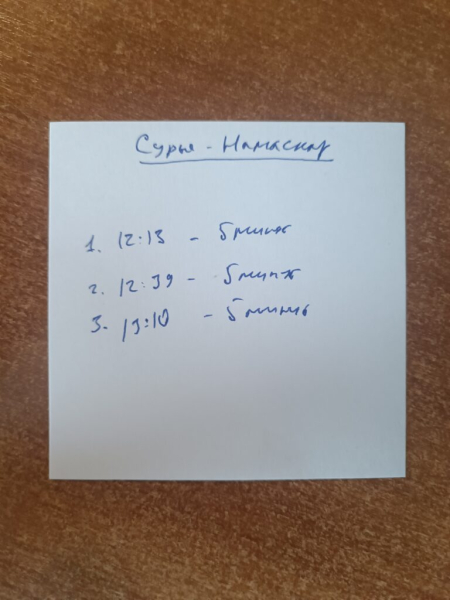 Сурья - Намаскар
1. 12:13 - 5 минут
2. 12:39 - 5 минут
3. 13:10 - 5 минут